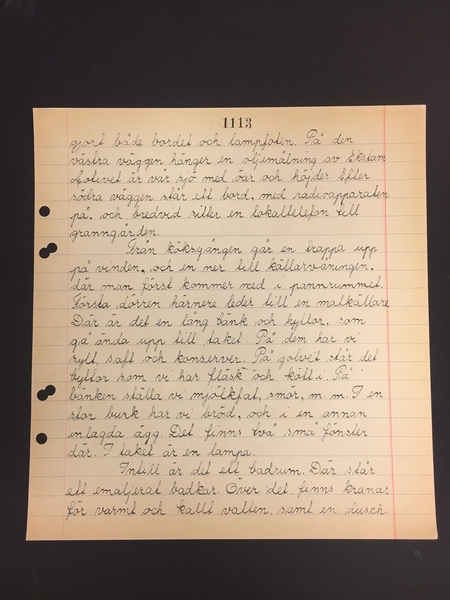 1113
gjort både bordet och lampfoten. På den
västra väggen hänger en oljemålning av Ekstam
Motivet är vår sjö med öar och höjder Efter
södra väggen står ett bord, med radioapparaten
på, och bredvid sitter en lokaltelefon till
granngården.
Från köksgången går en trappa upp
på vinden, och en ner till källarvåningen,
där man först kommer ned i pannrummet.
Första dörren härnere leder till en matkällare
Där är det en lång bänk och hyllor, som
gå ända upp till taket. På dem har vi
sylt, saft och konserver. På golvet står det
byttor som vi har fläsk och kött i. På
bänken ställa vi mjölkfat, smör, m. m. I en
stor burk har vi bröd, och i en annan
inlagda ägg. Det finns två små fönster
där. I taket är en lampa.
Intill är det ett badrum. Där står
ett emaljerat badkar. Över det finns kranar
för varmt och kallt vatten, samt en dusch.